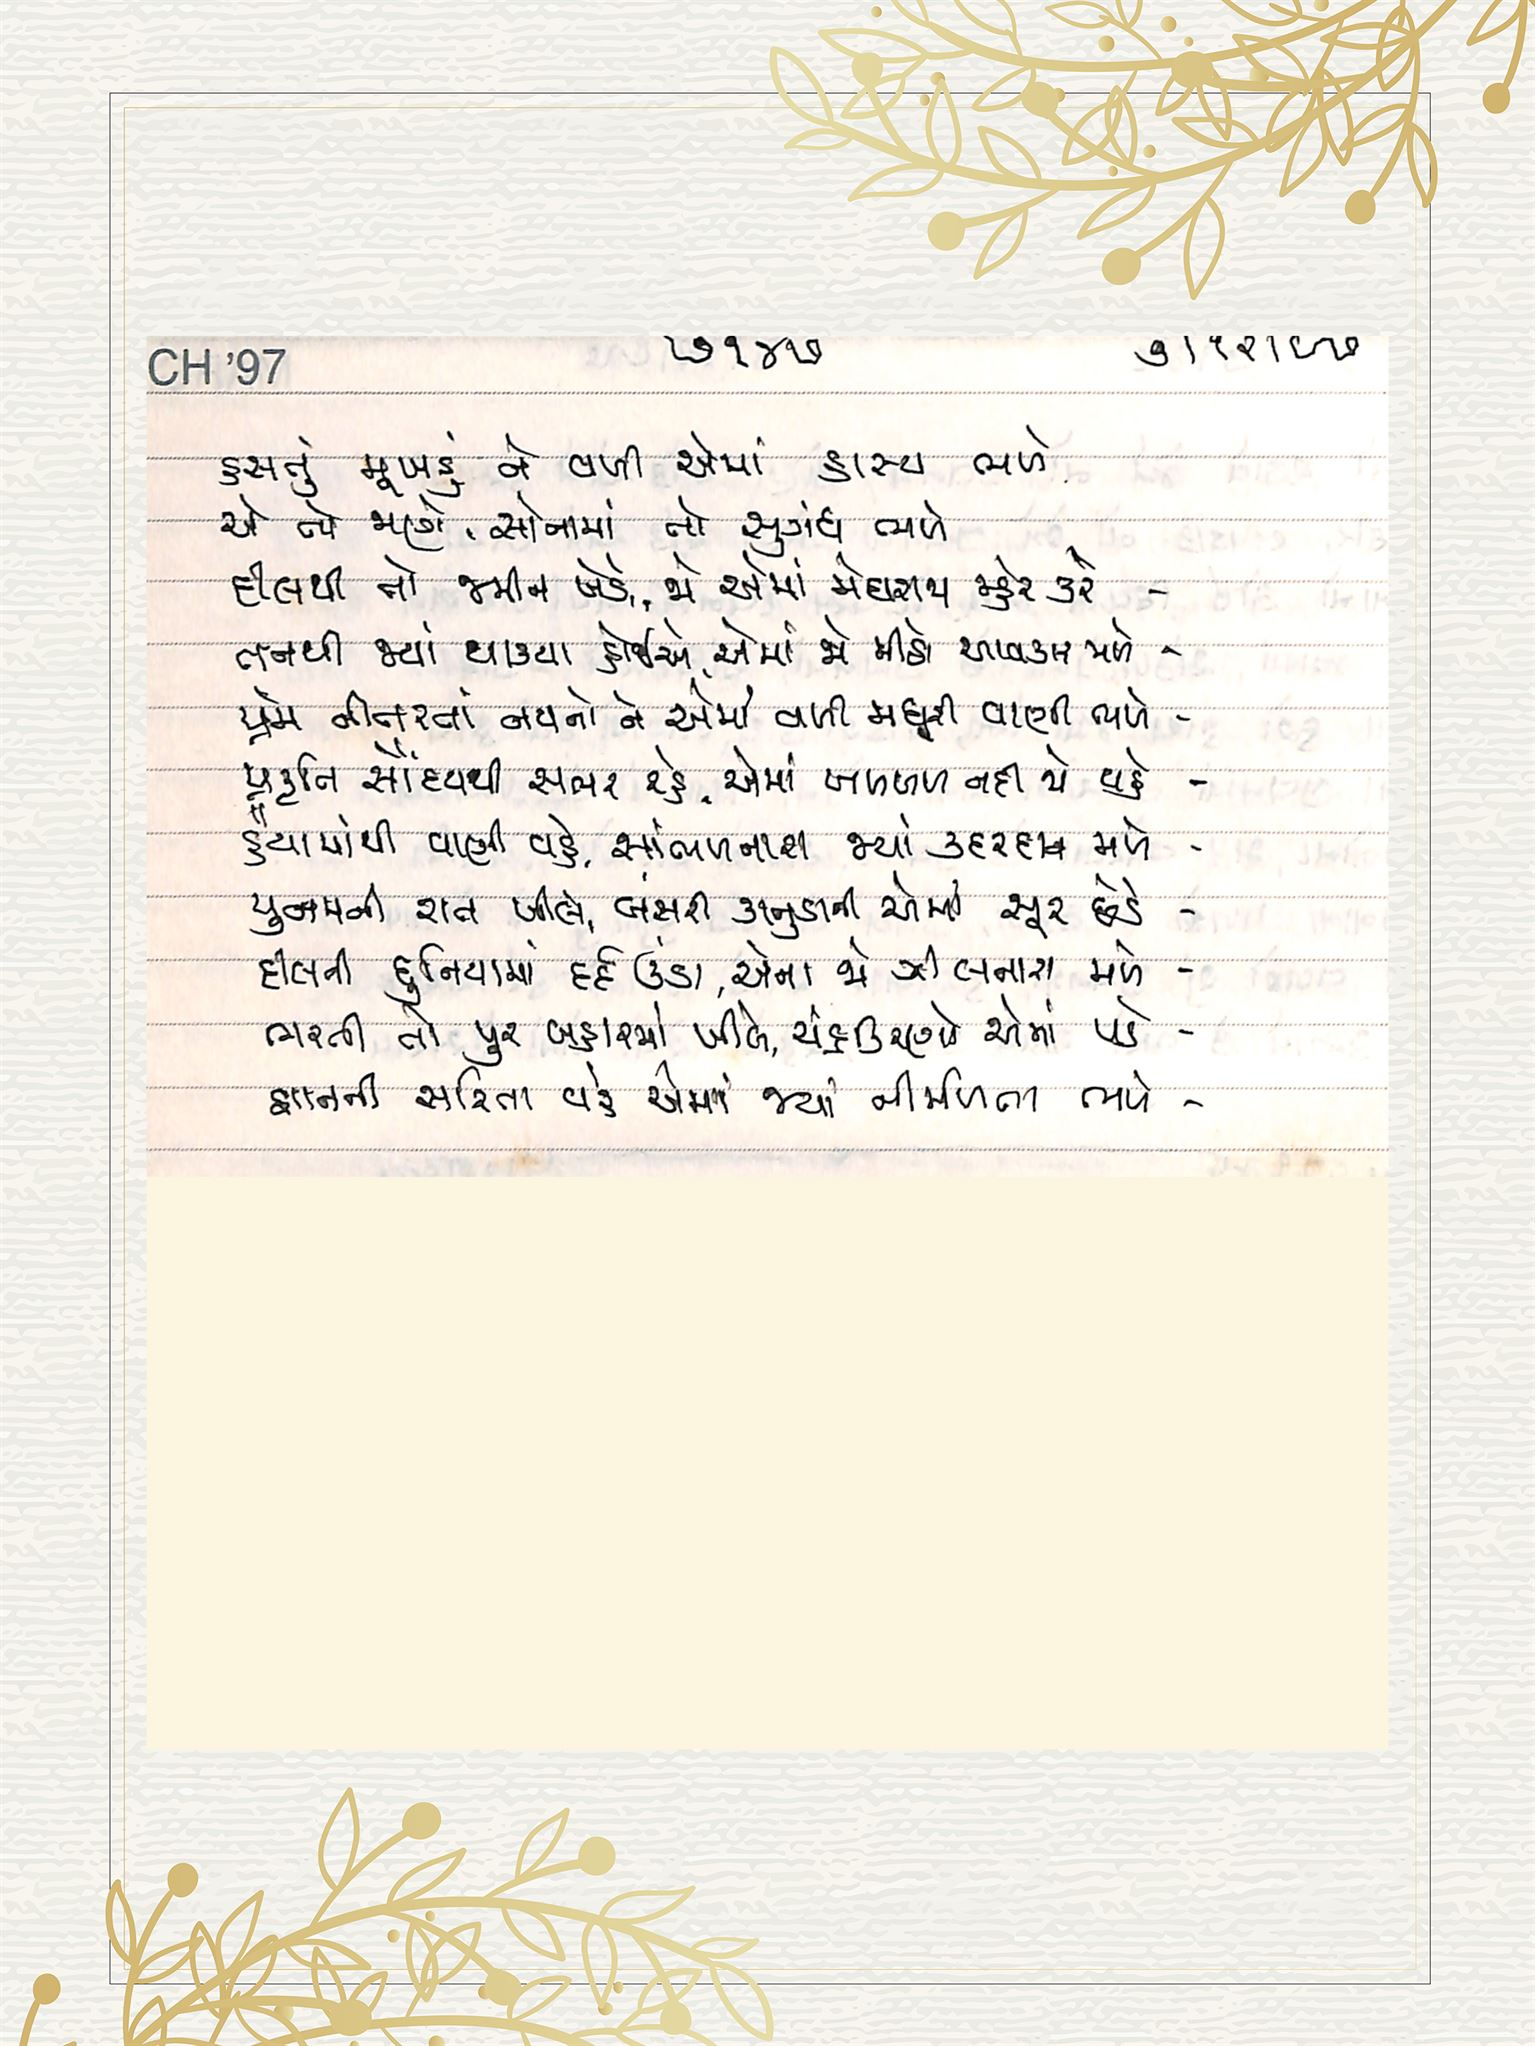 CH '97 ૭૧૪૭ ૭।૧૨।૯૭
હસતું મૂખડું ને વળી એમાં હાસ્ય ભળે
એ તો જાણે, સોનામાં તો સુગંધ ભળે
દીલથી તો જમીન ખેડે, જો એમાં મેઘરાજ મ્હેર કરે -
તનથી જ્યાં થાક્યા હોઈએ, એમાં જો મીઠો આવકાર મળે -
પ્રેમ નીતરતાં નયનો ને એમાં વળી મધુરી વાણી ભળે -
પ્રકૃતિ સૌંદર્યથી સભર રહે, એમાં ખળખળ નદી જો વહે -
હૈયામાંથી વાણી વહે, સાંભળનારા જ્યાં કદરદાન મળે -
પુનમની રાત ખીલે, બંસરી કાનુડાની એમાં સૂર છેડે -
દીલની દુનિયામાં દર્દ ઉંડા, એના જો ઝીલનારા મળે -
ભરતી તો પુર બહારમાં ખીલે, ચંદ્રકિરણો એમાં પડે -
જ્ઞાનની સરિતા વહે એમાં જ્યાં નીર્મળતા ભળે -